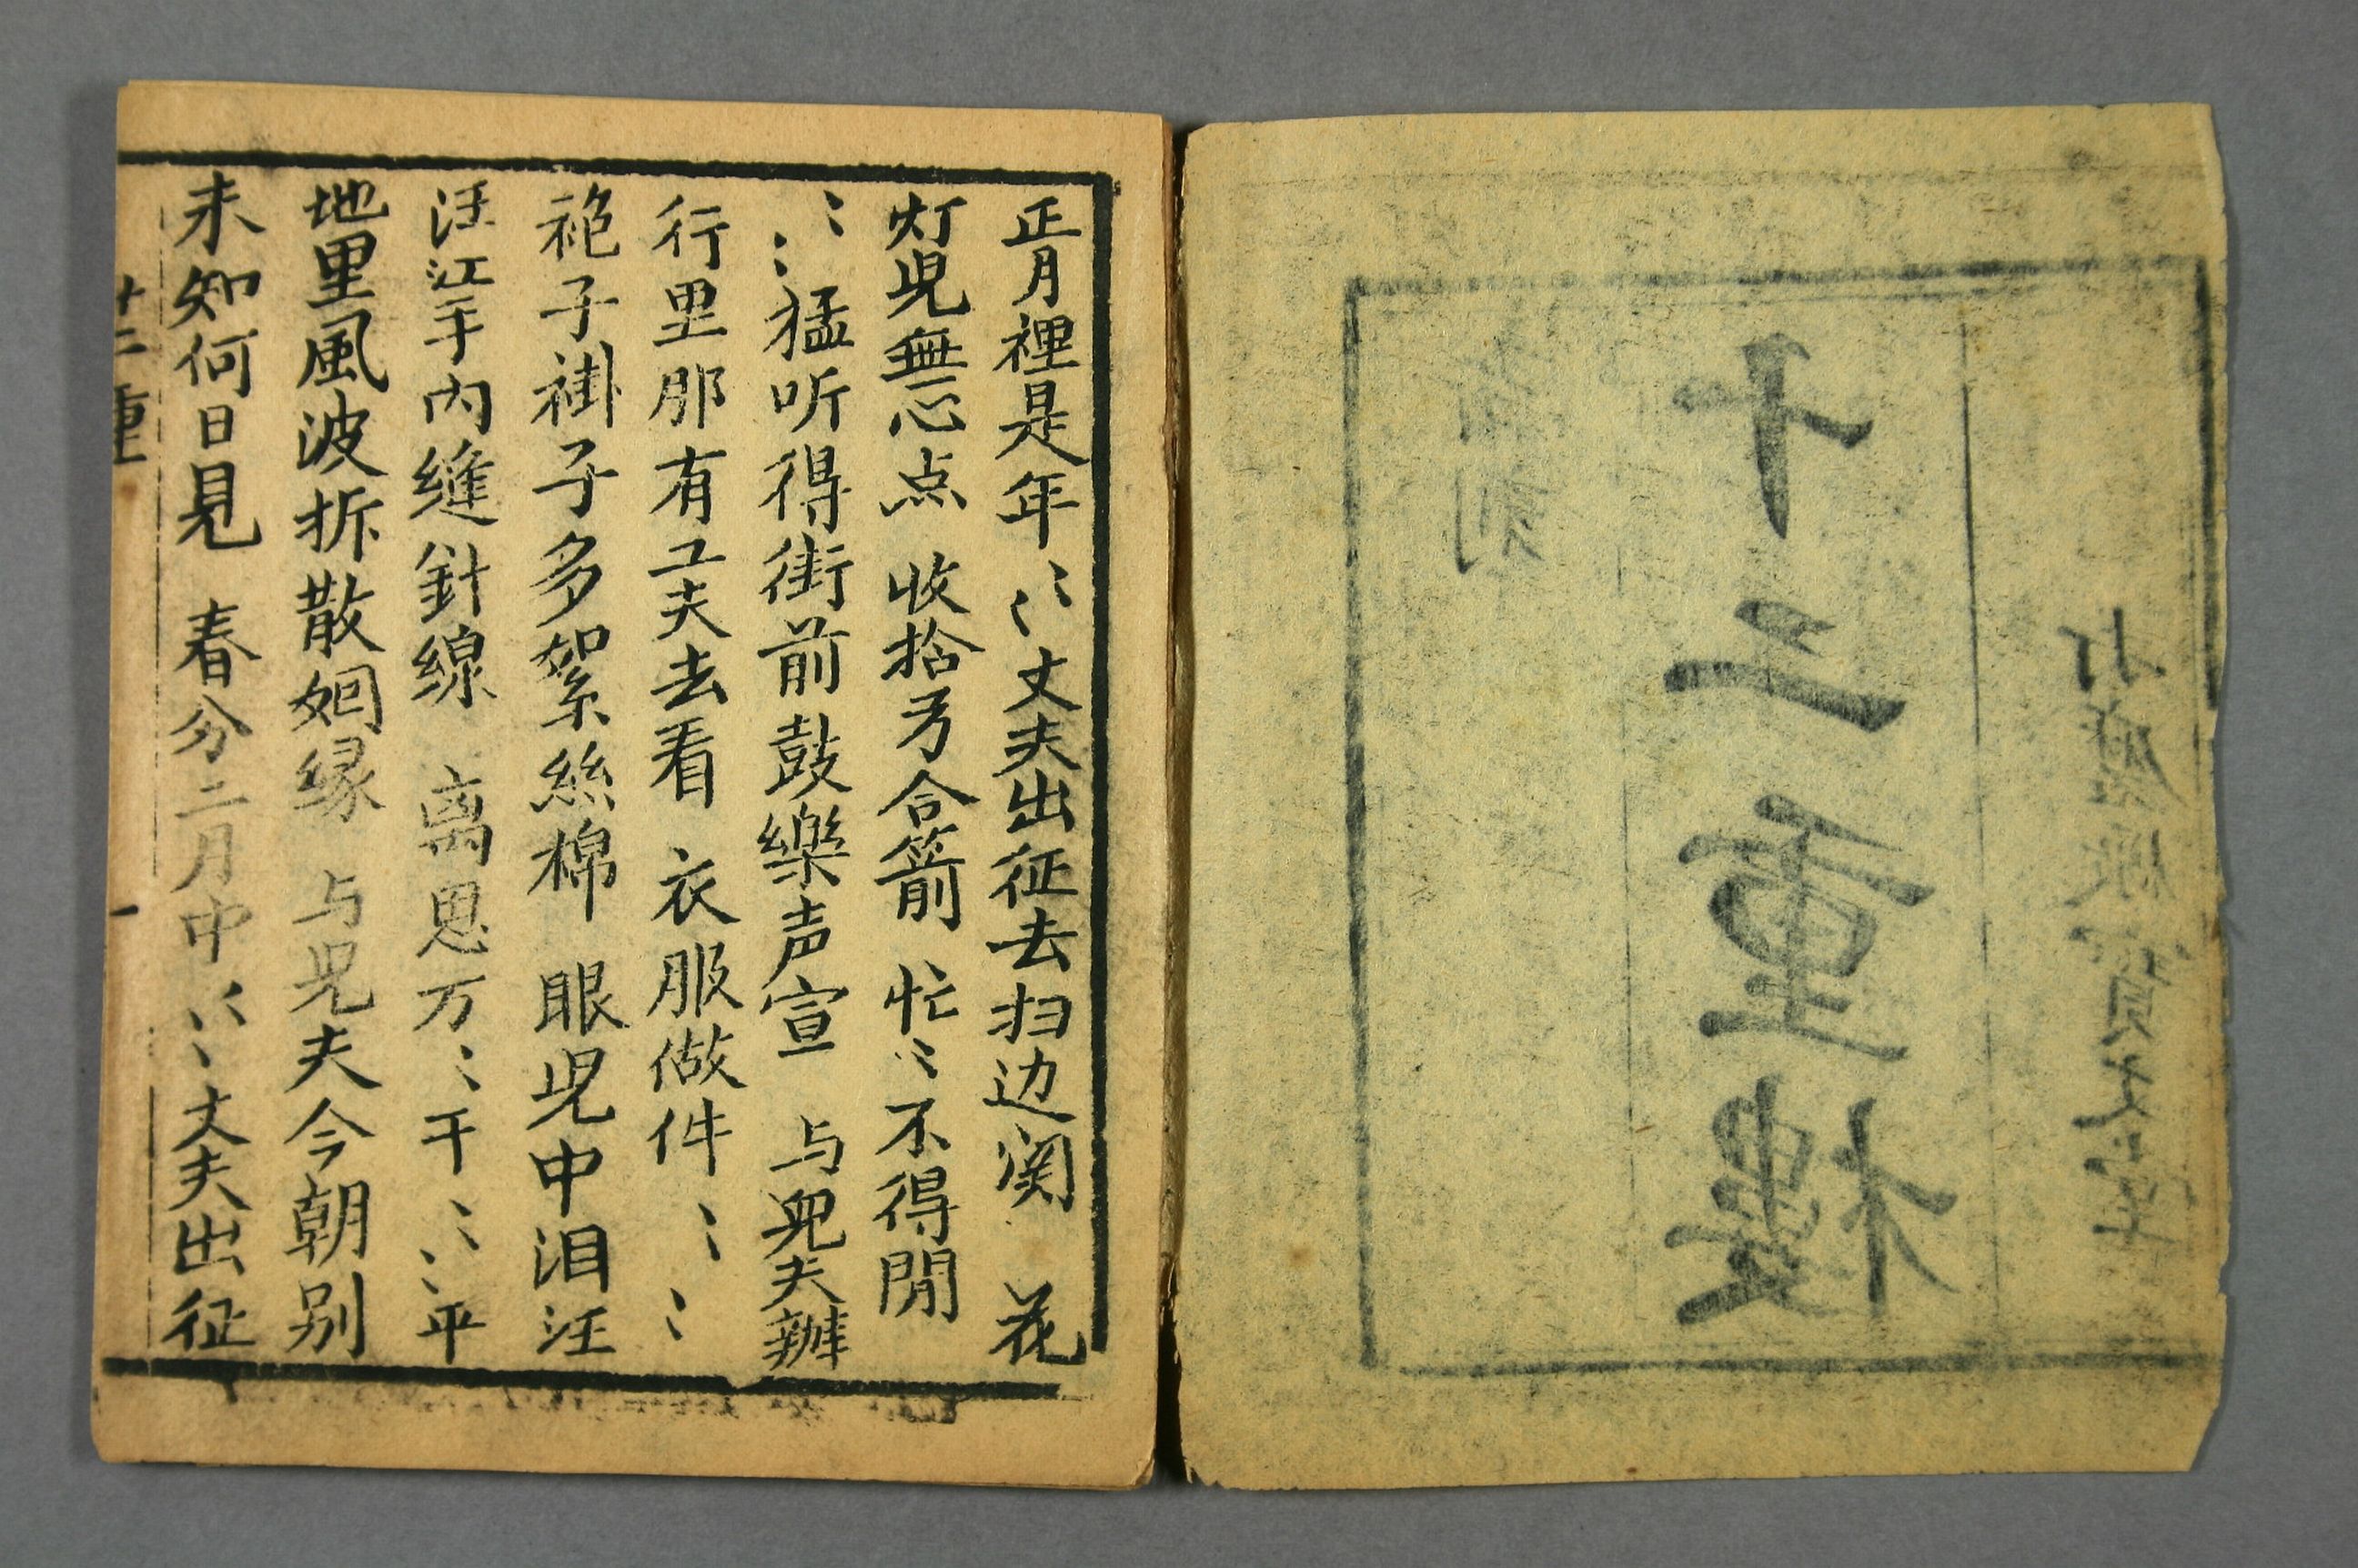 新刻
十二重樓
打磨廠寶文堂
正月裡是年〻〻丈夫出征去扫边関 花
灯児無心点 收拾弓合箭 忙〻不得閒
〻〻猛听得街前鼓樂声宣 与児夫辦
行里那有工夫去看 衣服做件〻〻
袍子褂子多絮絲棉 眼児中泪汪
汪江手内缝針線 离恩万〻干〻〻平
地里風波拆散姻縁 与児夫今朝别
未知何日見 春分二月中〻〻丈夫出征
十二重 一